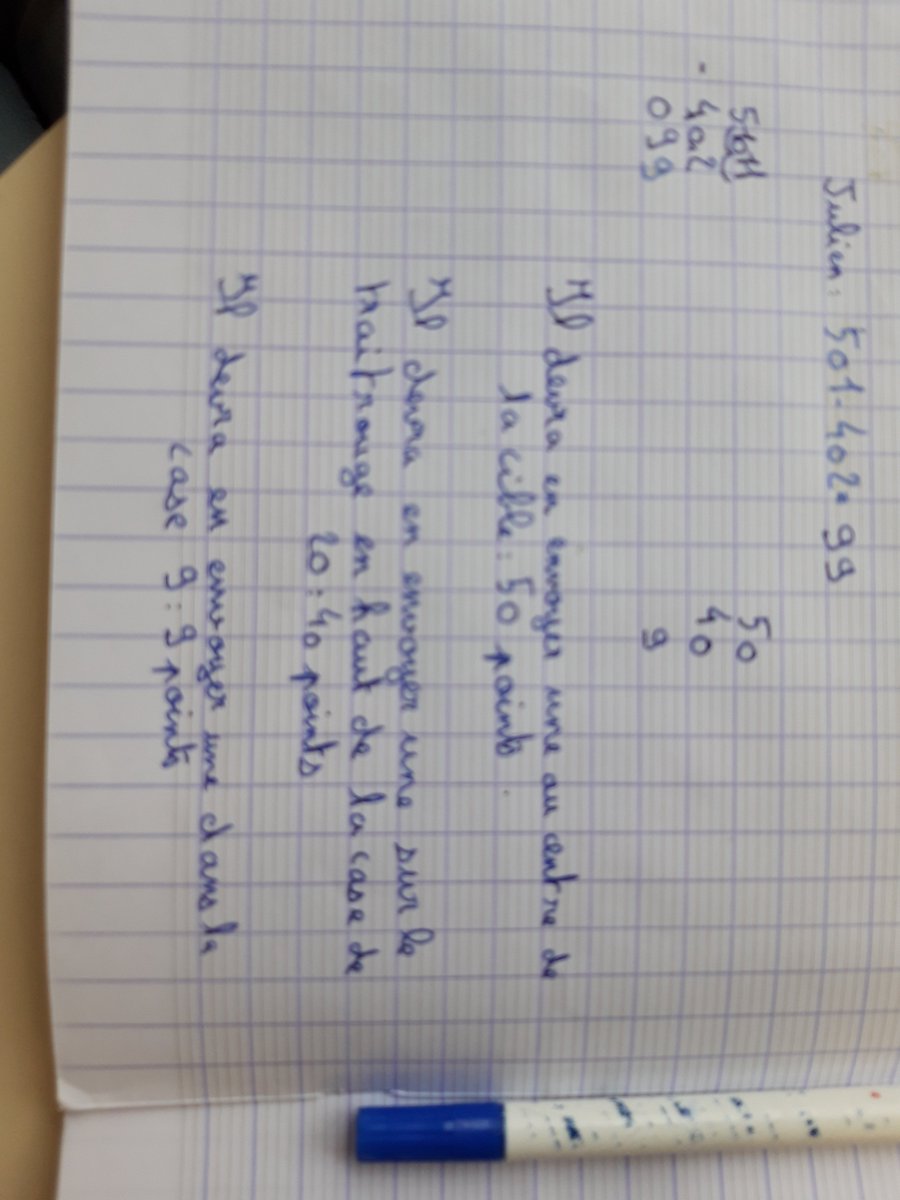 Julien : 501-402= 99
501
- 402
099
50
40
9
Il devra en envoyer une au centre de
la cible : 50 points.
Il devra en envoyer une sur le
trait rouge en haut de la case de
20 : 40 points
Il devra en envoyer une dans la
case 9 : 9 points